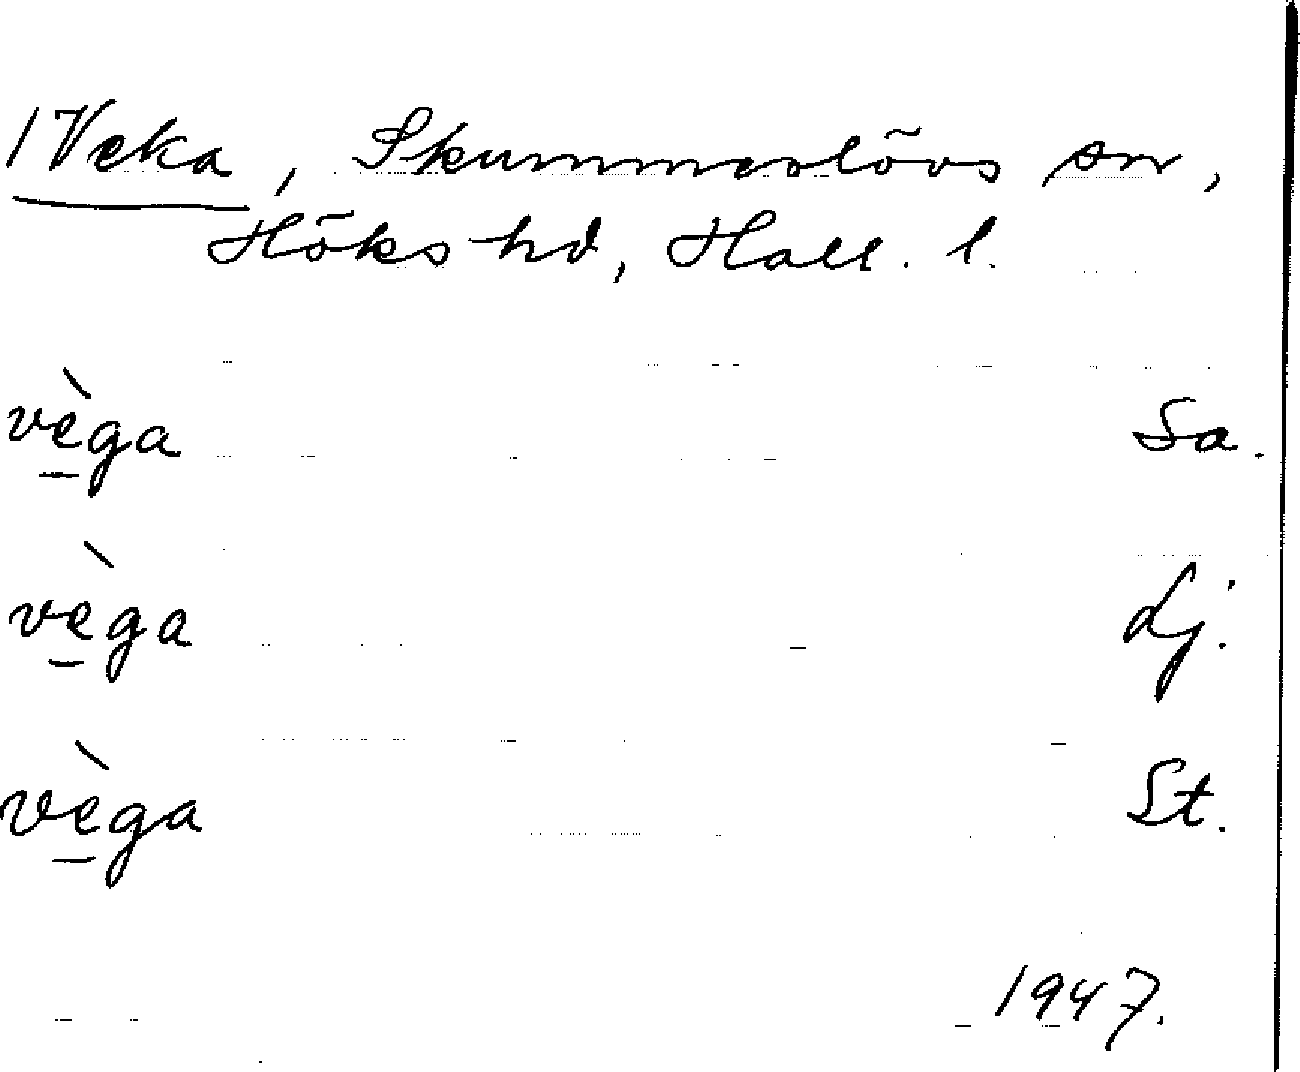 1 Veka, Skummeslövs sn,
Höks hd, Hall. l.
vèga Sa.
vèga Lj.
vèga St.
1947.